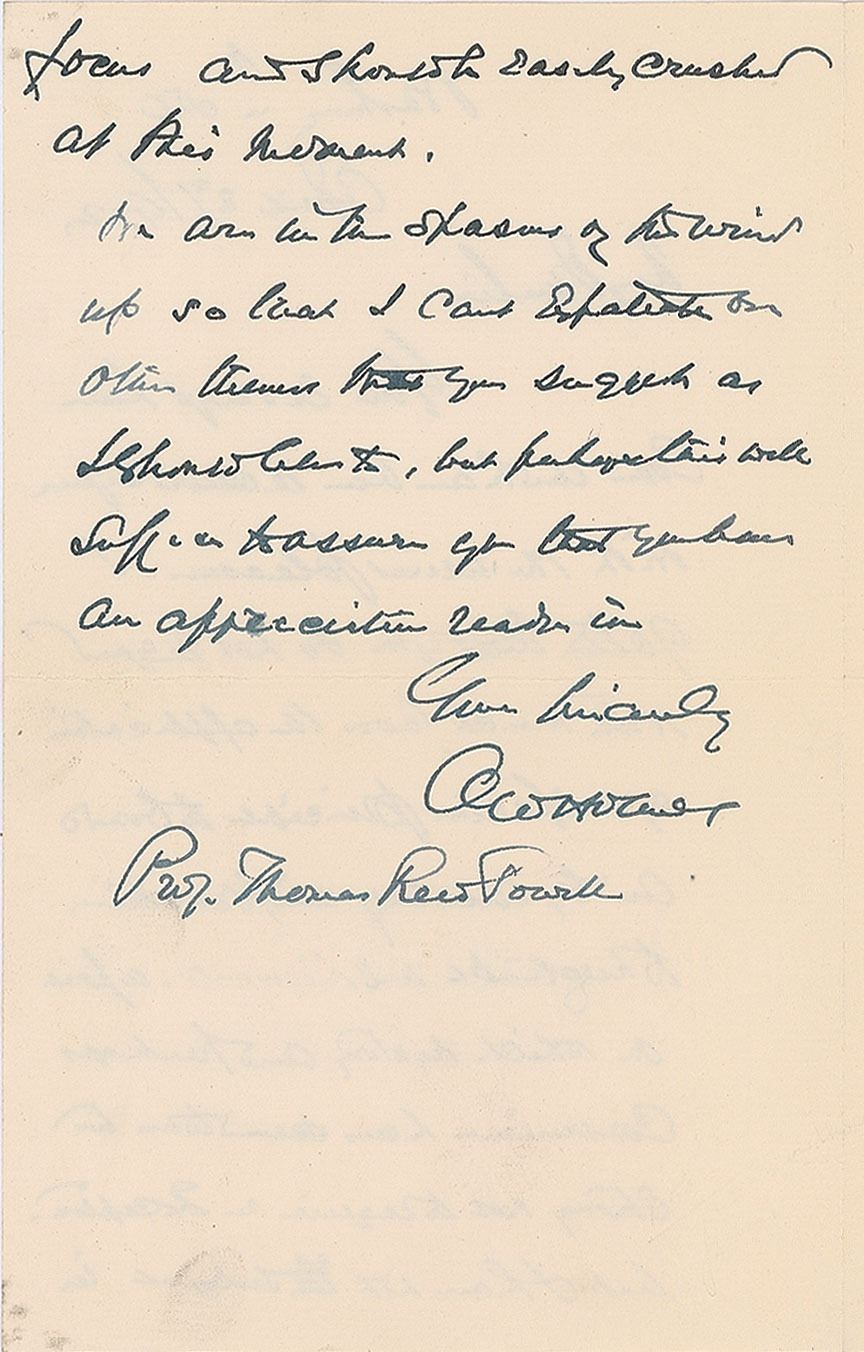 focus and I should be easily crushed
at this moment.
We are in the spasms of the wind
up so that I cant expatiate on
other themes that you suggest as
I should like to, but perhaps this will
suffice to assure you that you have
an appreciative reader in
Yours sincerely
O W Holmes
Prof. Thomas Reed Powell